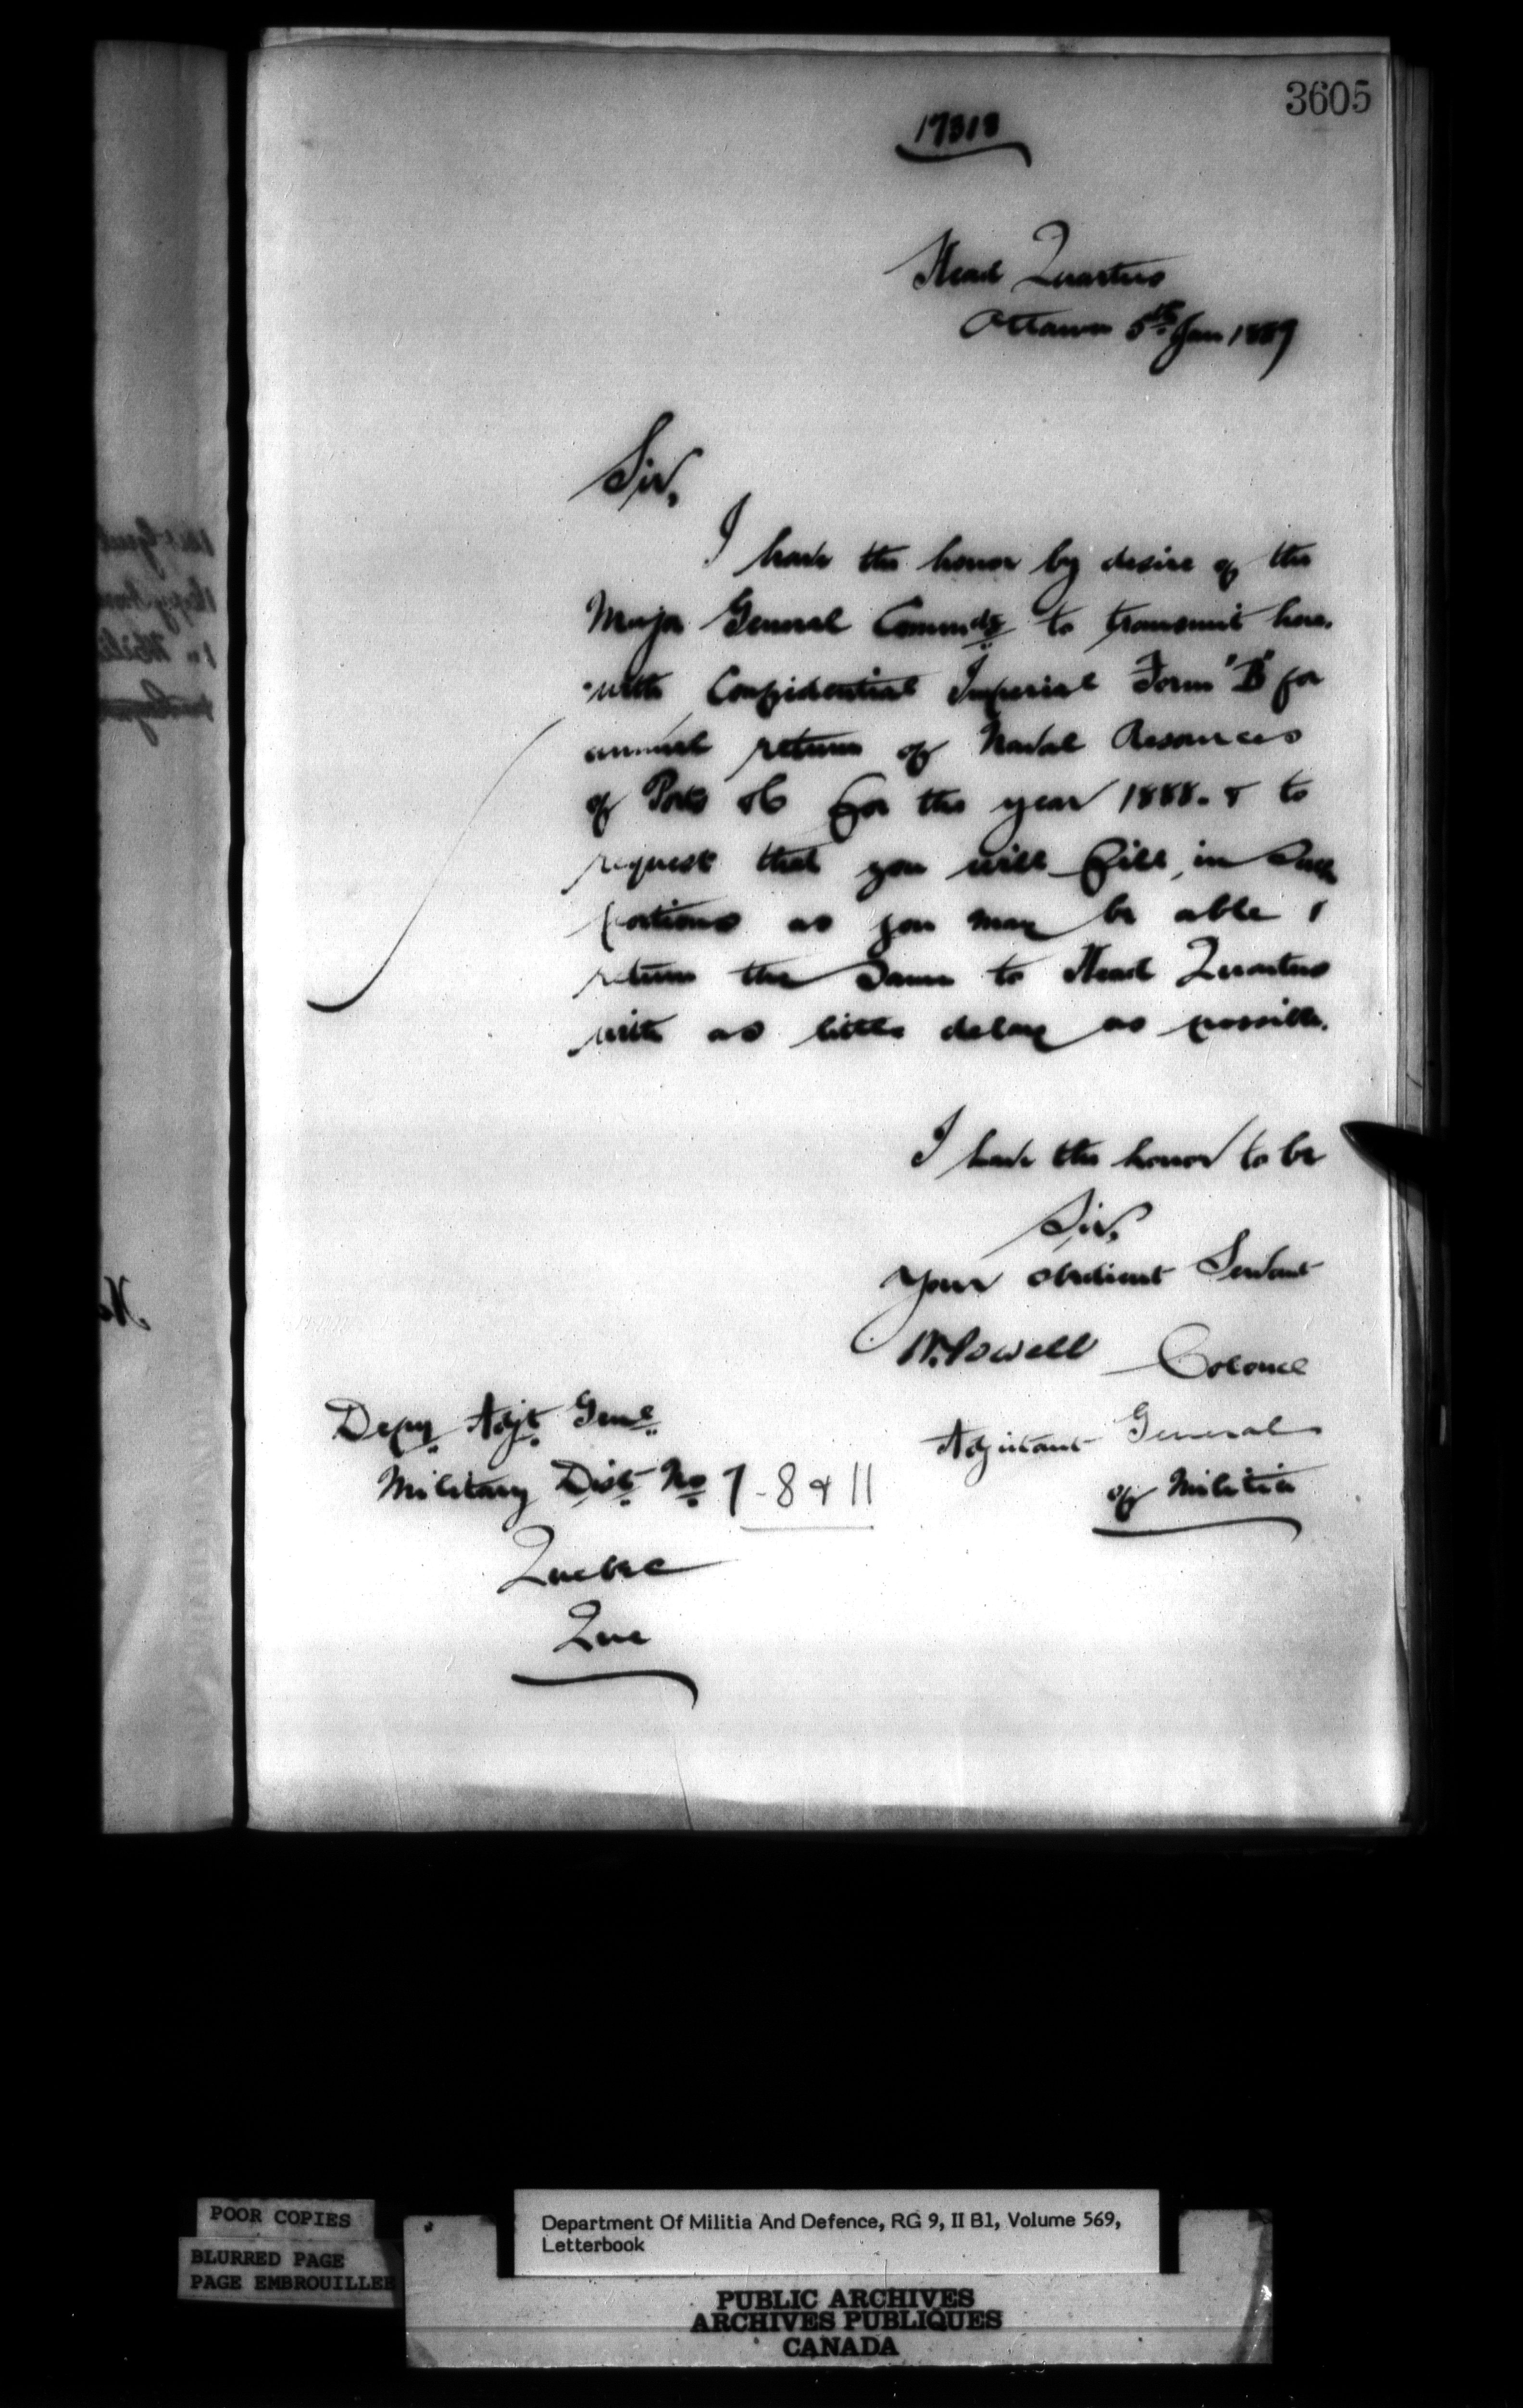 3605
17318
Head Quarters
Ottawa 5th Jan 1889
Sir,
I have the honor by desire of the
Major General Commdg to transmit here-
with Confidential Imperial Form "B" for
annual return of Naval Resources
of Ports &c for the year 1888. & to
request that you will fill in such
portions as you may be able &
return the same to Head Quarters
with as little delay as possible.
I have the honor to be
Sir,
Your obedient Servant
W. Powell Colonel
Adjutant General
of Militia
Depy Adjt Genl
Military Dist No 7-8 & 11
Quebec
Que
POOR COPIES
BLURRED PAGE
PAGE EMBROUILLEE
Department Of Militia And Defence, RG 9, II B1, Volume 569,
Letterbook
PUBLIC ARCHIVES
ARCHIVES PUBLIQUES
CANADA